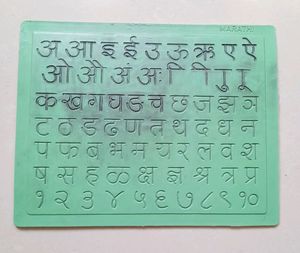 MARATHI
अ आ इ ई उ ऊ ऋ ए ऐ
ओ औ अं अः ा ि ी ु ू
क ख ग घ ङ च छ ज झ ञ
ट ठ ड ढ ण त थ द ध न
प फ ब भ म य र ल व श
ष स ह ळ क्ष ज्ञ श्र त्र प्र
१ २ ३ ४ ५ ६ ७ ८ ९ १०